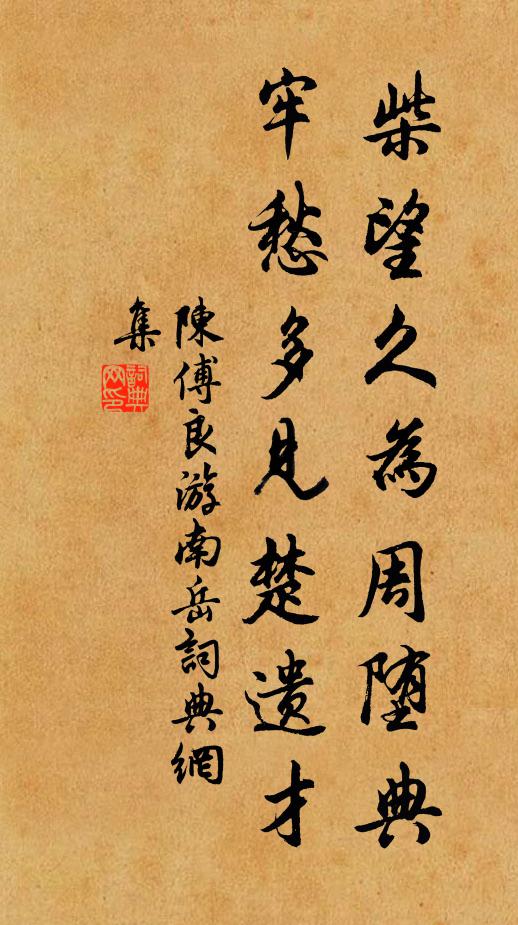 柴望久為周堕典
牢愁多見楚遺才
陳傅良游南岳詞典網
集
詞典
网印